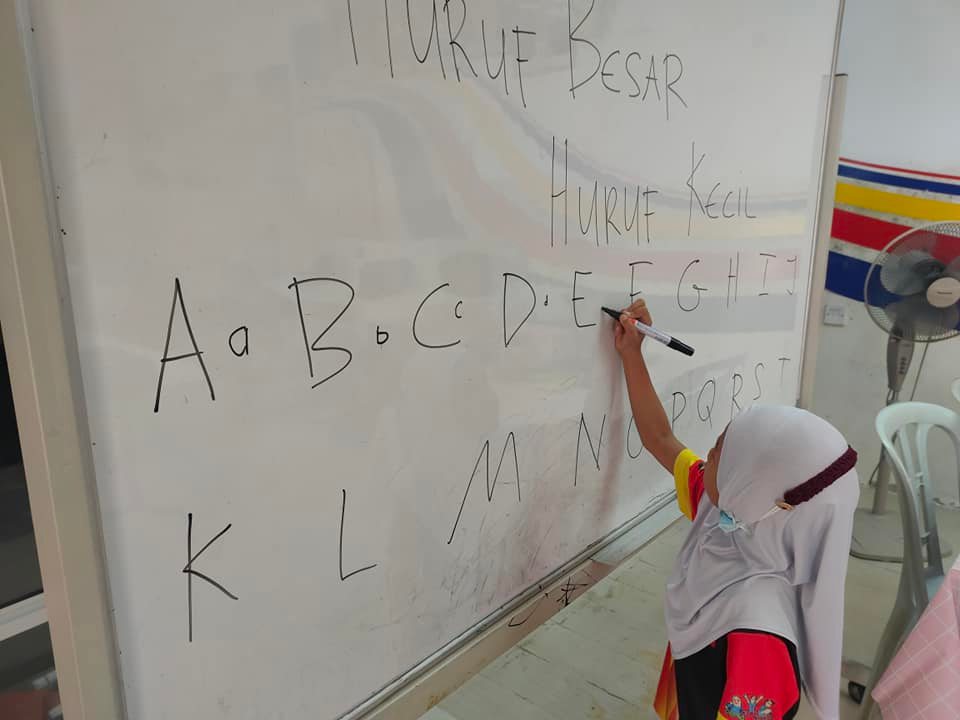 HURUF BESAR
HURUF KECIL
A a B b C c D E F G H I J
K L M N O P Q R S T